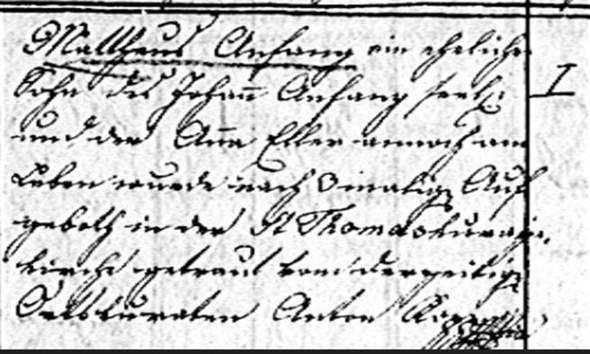 Matthaus Anfang ein ehelicher
Sohn des Johann Anfang seel:
und der Anna Eller annoch am
Leben wurde nach 3maliger Auf
geboth in der St Thomas
Kirche getraut vom derzeitigen
Anton
I